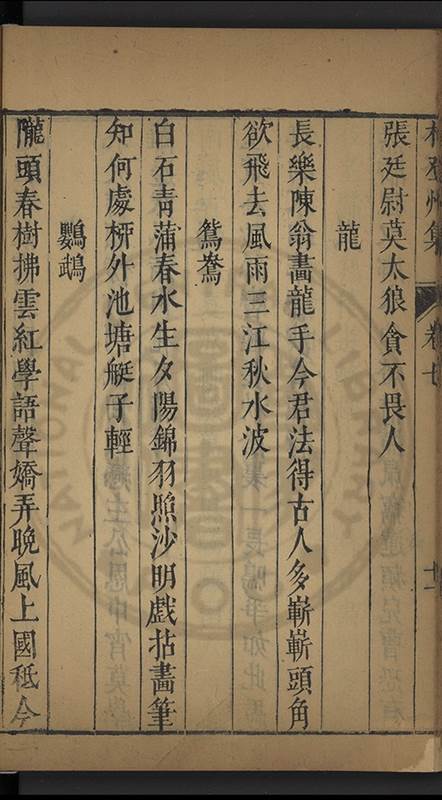 林登州集 卷七 十二
張廷尉莫太狼貪不畏人
龍
長樂陳翁畵龍手今君法得古人多嶄嶄頭角
欲飛去風雨三江秋水波
鴛鴦
白石青蒲春水生夕陽錦羽照沙明戲拈畵筆
知何處枰外池塘艇子輕
鸚鵡
隴頭春樹拂雲紅學語聲嬌弄晚風上國秪今